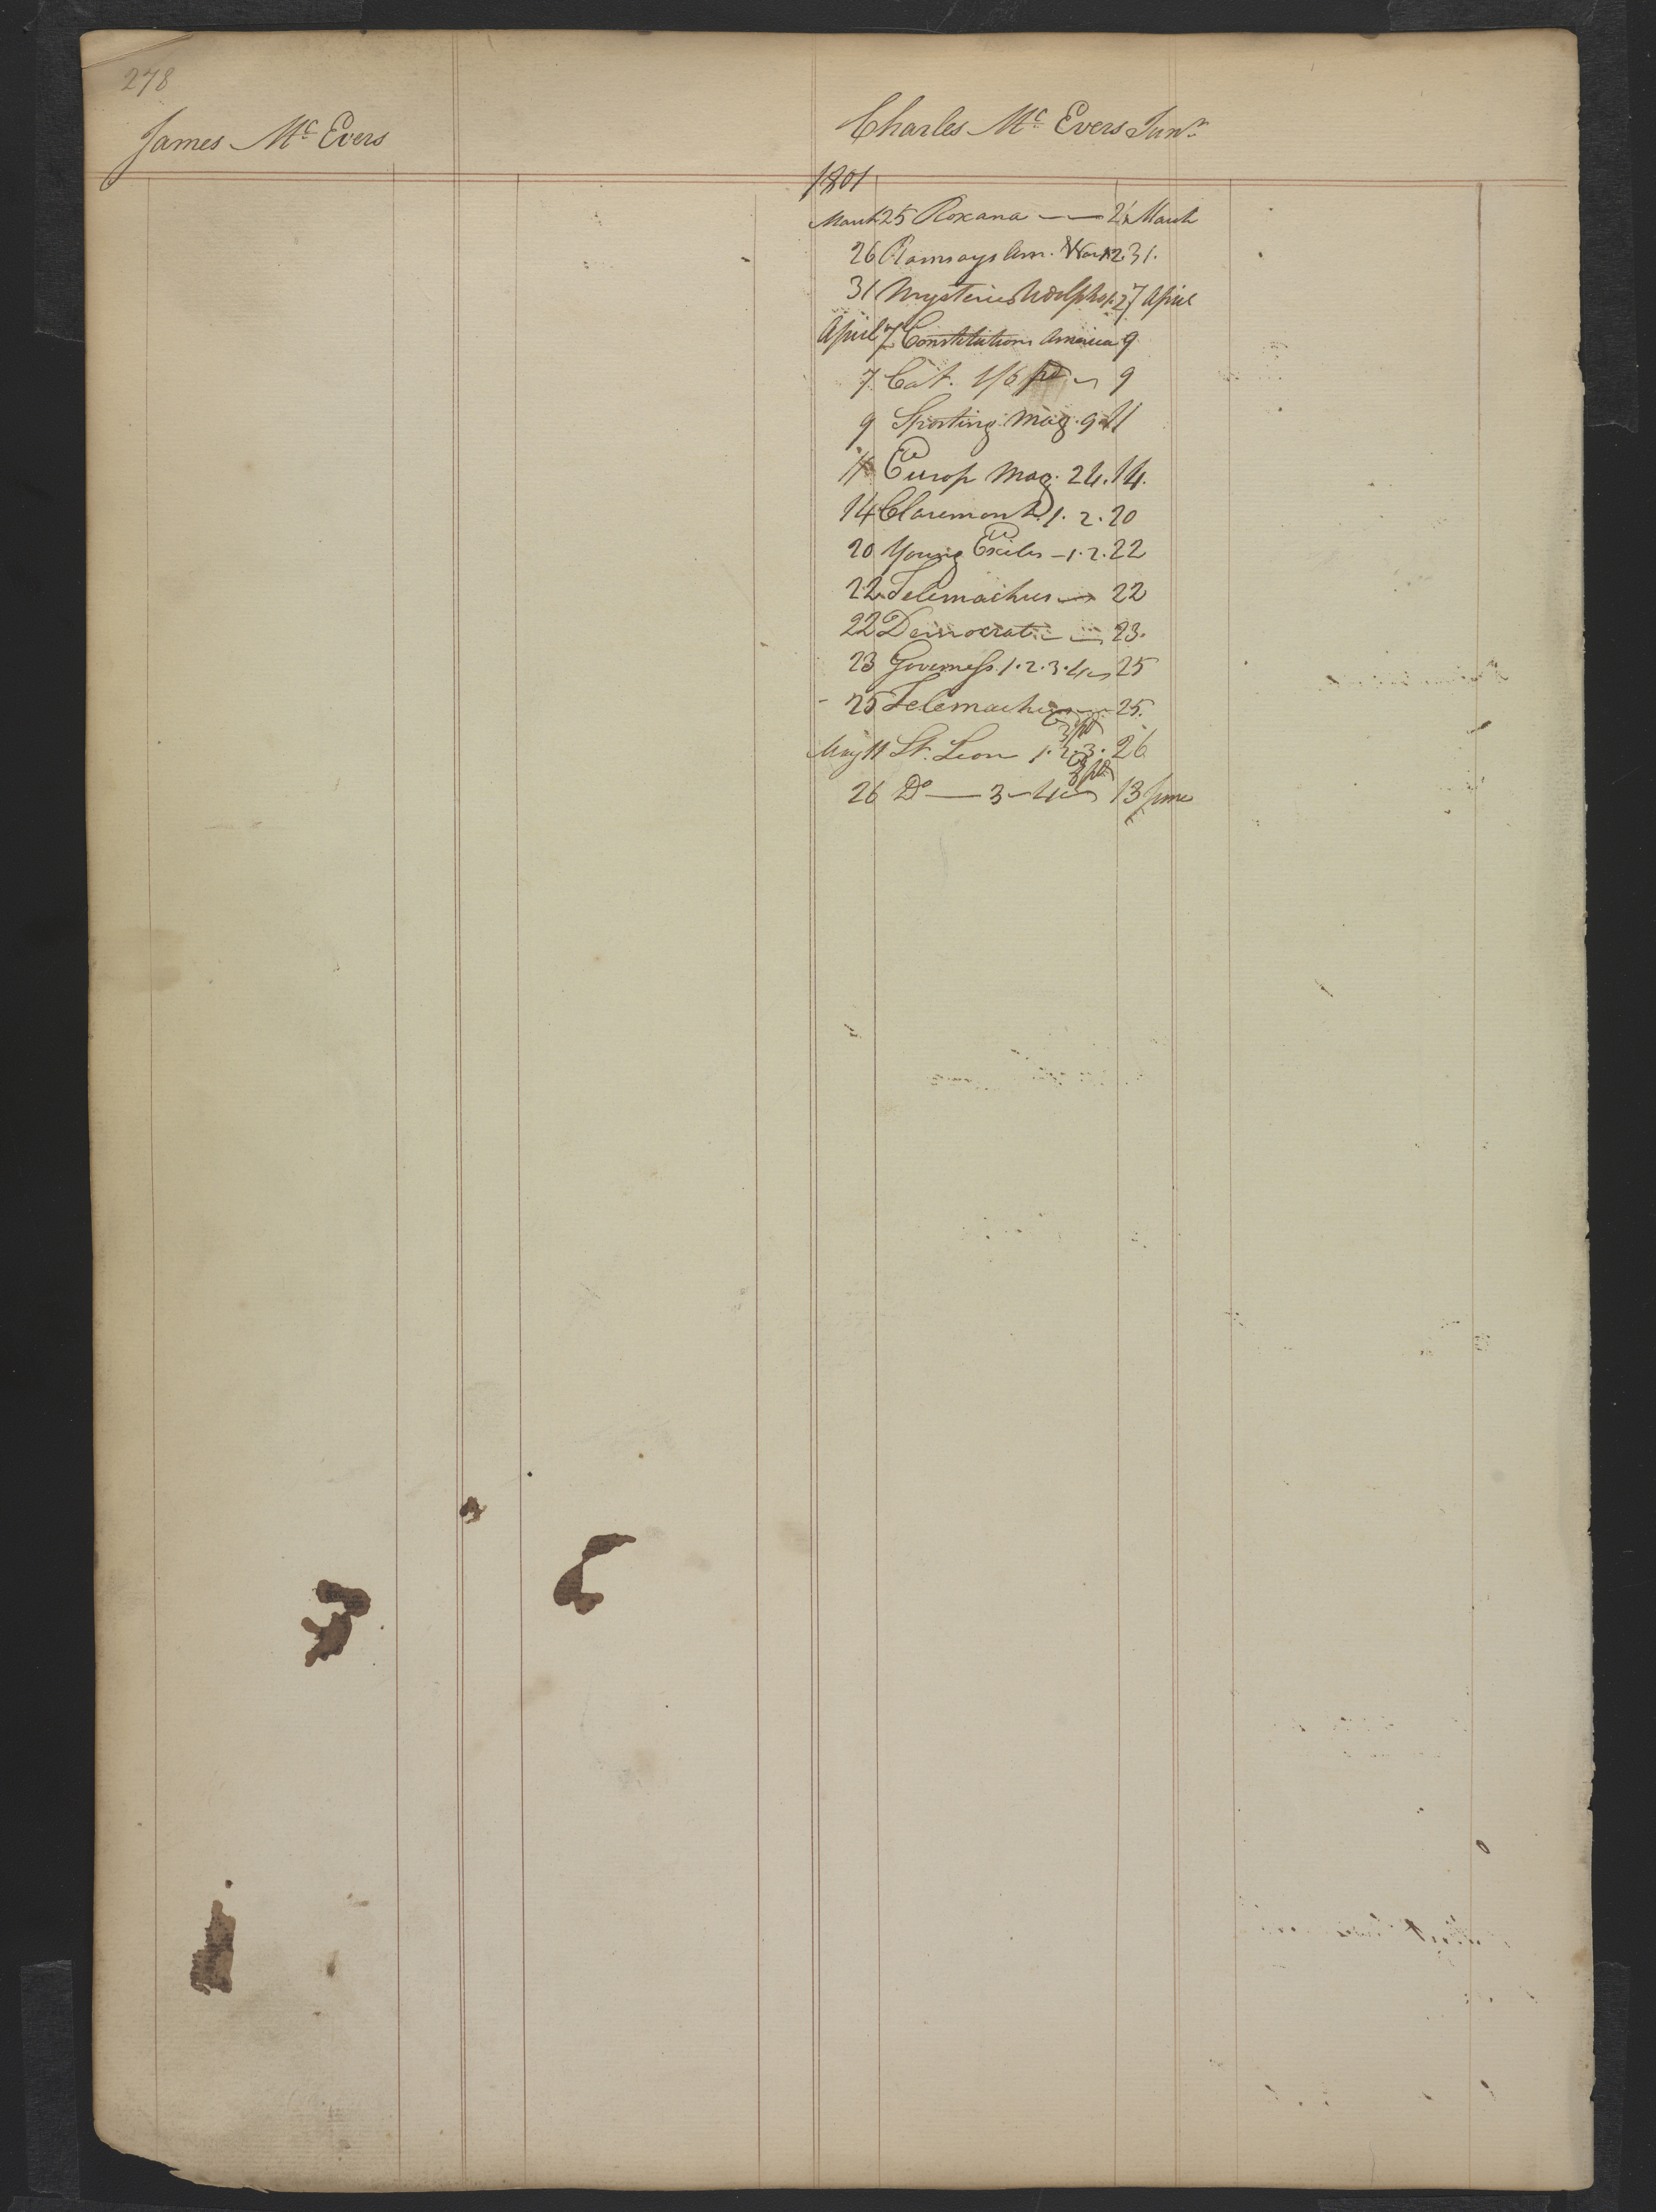 278
James Mc. Evers
Charles Mc. Evers Junr.
1801
March 25 Roxana — March
26 Ramsays Am. War 1.2 31.
31 Mysteries Udolpho 1.2 7 April
April 7 Constitutions America 9
7 Cat. 1/6 pd 9
9 Sporting Mag. 9 11
11 Europ Mag. 24. 14.
14 Claremont 1. 2. 20
20 Young Exiles — 1. 2. 22
22 Telemachus — 22
22 Democrat — 23.
23 Governess. 1. 2. 3. 4 25
25 Telemachus — 25.
May 11 St. Leon 1. 2. 3. 26
3/pd
26 Do — 3 — 4 13 June